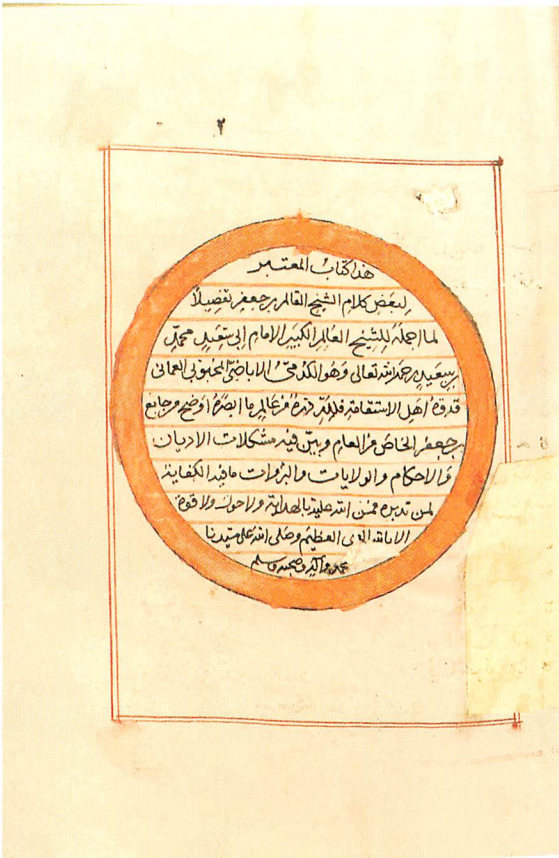 ٢
هذا كتاب المعتبر
لبعض كلام الشيخ العالم بن جعفر تفصيلاً
لما اجمله للشيخ العالم الكبير الامام ابي سعيد محمد
بن سعيد رحمه الله تعالى وهو الكدمي الاباضي المحبوبي العماني
قدوة اهل الاستقامة فلله دره من عالم ما ابصره اوضح وجامع
بن جعفر الخاص والعام وبين فيه مشكلات الاديان
والاحكام والولايات والبروات ما فيه الكفاية
لمن تدبره ممن الله عليه بالهداية ولا حول ولا قوة
الا بالله العلي العظيم وصلى الله على سيدنا
محمد وآله وصحبه وسلم